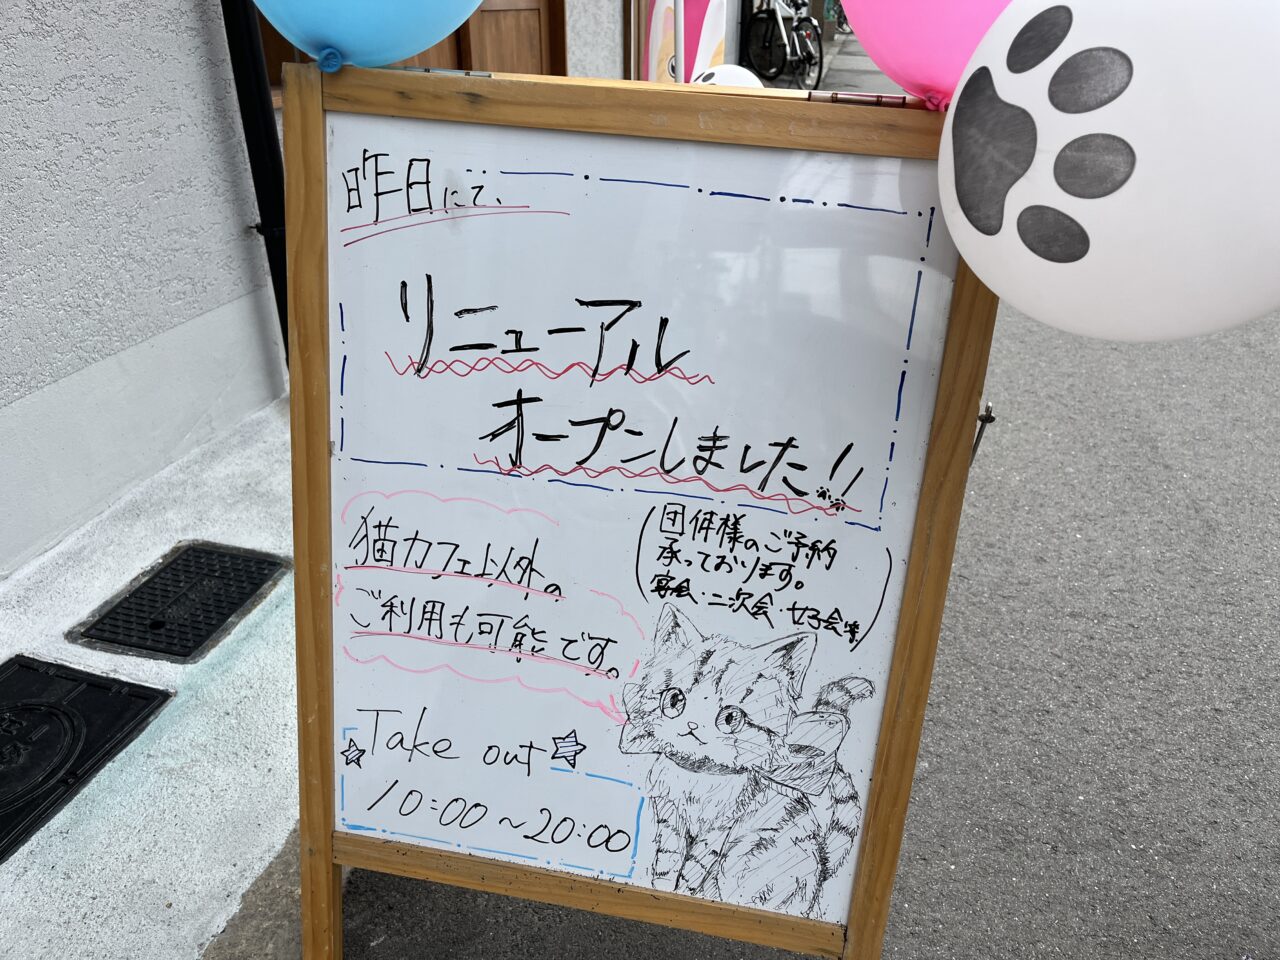 昨日にて、
リニューアル
オープンしました!!
猫カフェ以外の
ご利用も可能です。
(団体様のご予約
承っております。
宴会・二次会・女子会等)
Take out
10:00~20:00